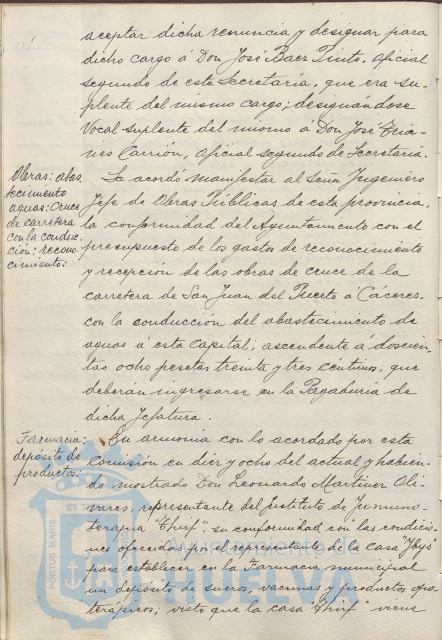 aceptar dicha renuncia y designar para
dicho cargo á Don José Baez Pinto, oficial
segundo de esta Secretaría, que era su-
plente del mismo cargo; designandose
Vocal suplente del mismo á Don José Tria-
no Carrión, oficial segundo de Secretaría.
Obras: abas
tecimiento
aguas: Cruce
de carretera
con la conduc-
ción: recono-
cimiento:
Se acordó manifestar al Señor Ingeniero
Jefe de Obras Públicas de esta provincia,
la conformidad del Ayuntamiento con el
presupuesto de los gastos de reconocimiento
y recepción de las obras de cruce de la
carretera de San Juan del Puerto á Cáceres,
con la conducción del abastecimiento de
aguas á esta capital, ascendente á doscien-
tas ocho pesetas treinta y tres céntimos, que
deberán ingresarse en la Pagaduría de
dicha Jefatura.
Farmacia:
depósito de
productos:
En armonía con lo acordado por esta
Comisión en diez y ocho del actual y habien-
do mostrado Don Leonardo Martínez Oli-
vares, representante del Instituto de Inmuno-
terapia "Thirf", su conformidad con las condicio-
nes ofrecidas por el representante de la casa "Ybys"
para establecer en la Farmacia municipal
un depósito de sueros, vacunas y productos opo-
terápicos; visto que la casa "Thirf" viene
Ayuntamiento de
HUELVA
PORTUS MARIS